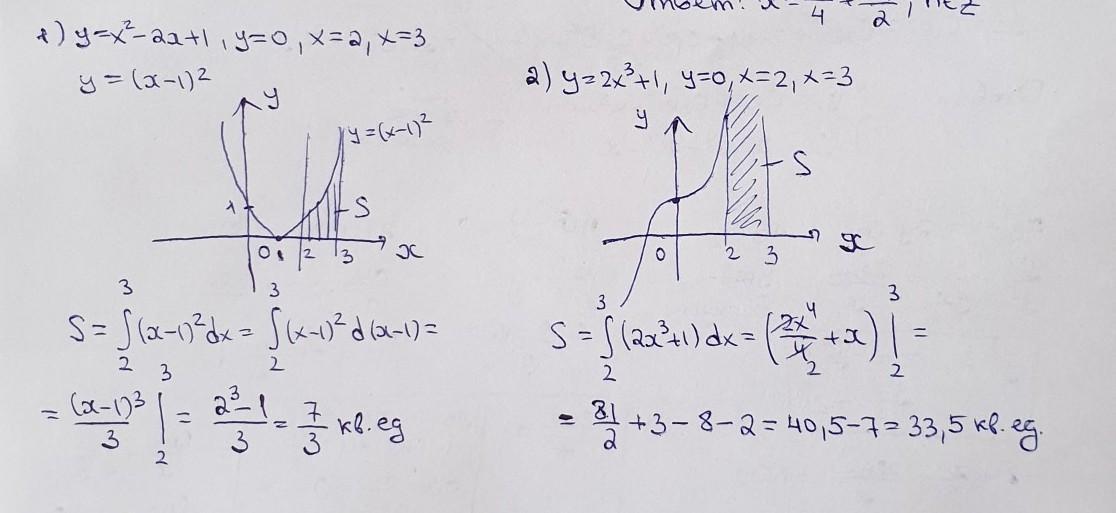 Ответ: x = 4 + 2, n∈Z
1) y=x²-2x+1, y=0, x=2, x=3
y = (x-1)²
y
y=(x-1)²
1
S
0 1 2 3 x
S = ∫₂³ (x-1)² dx = ∫₂³ (x-1)² d(x-1) =
= (x-1)³/3 |₂³ = (2³-1)/3 = 7/3 кв. ед
2) y=2x³+1, y=0, x=2, x=3
y
S
0 2 3 x
S = ∫₂³ (2x³+1) dx = (2x⁴/4₂ + x) |₂³ =
= 81/2 + 3 - 8 - 2 = 40,5 - 7 = 33,5 кв. ед.